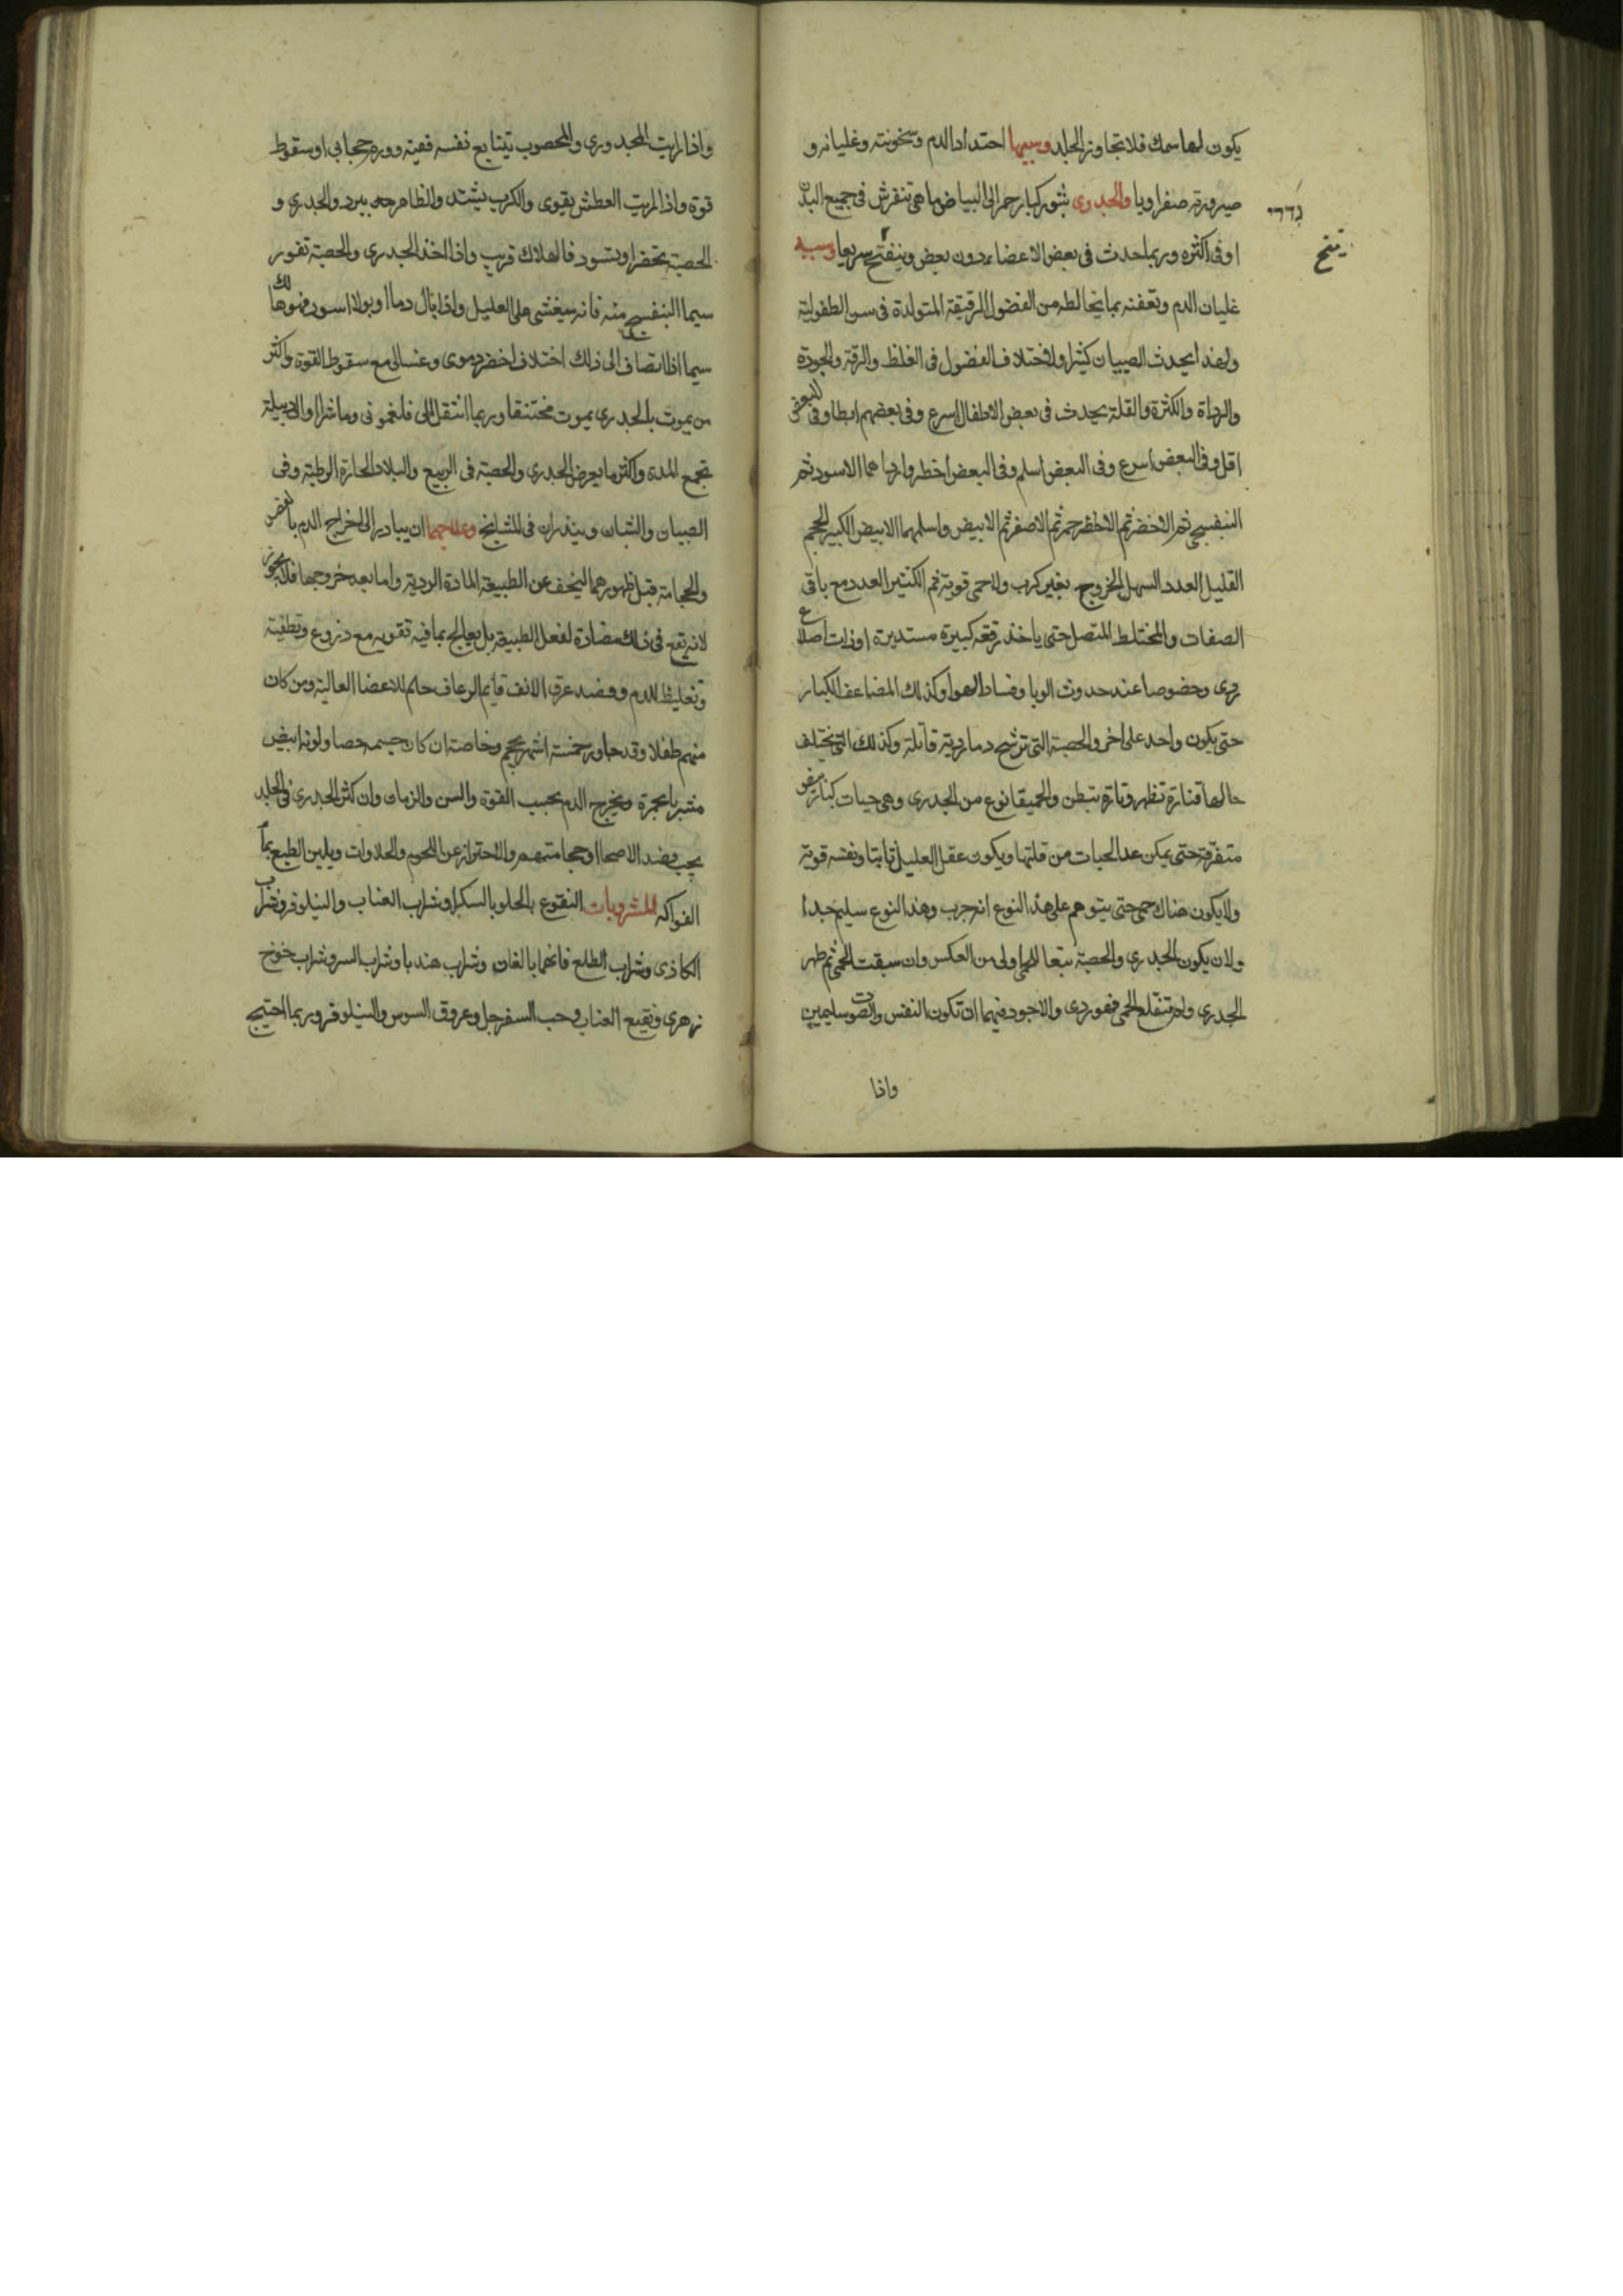 يكون لها سمك فلا تجاوز الجلد وسببها احتداد الدم وسخونته وغليانه و
صيرورته صفراويا والجدري بثور كبار حمر الى البياض ما هى تنفرش فى جميع البدن
او فى اكثره وربما حدث فى بعض الاعضاء دون بعض ويتفتح سريعا وسببه
تتقيح
غليان الدم وتعفنه بما يخالطه من الفضول الرقيقة المتولدة فى سن الطفولية
ولهذا يحدث الصبيان كثيرا ولاختلاف الفضول فى الغلظ والرقة والجودة
والرداة والكثرة والقلة يحدث فى بعض الاطفال اسرع وفى بعضهم ابطا وفى البعض
اقل وفى البعض اسرع وفى البعض اسلم وفى البعض اخطر وارداهما الاسود ثم
البنفسجى ثم الاخضر ثم الاحمر ثم الاصفر ثم الابيض واسلمهما الابيض الكبير الحجم
القليل العدد السهل الخروج بغير كرب ولا حمى قوية ثم الكثير العدد مع باقى
الصفات والمختلط المتصل حتى ياخذ رقعه كبيرة مستديرة او ذات اضلاع
ردى وخصوصا عند حدوث الوبا وفساد الهوا وكذلك المضاعف الكبار
حتى يكون واحد على اخر والحصبة التى ترشح دما ردية قاتلة وكذلك التى تختلف
حالها فتارة تظهر وتارة تبطن والحميقا نوع من الجدرى وهى حبات كبار
متفرقة حتى يمكن عد الحبات من قلتها ويكون عقل العليل ثابتا ونفسه قوية
ولا يكون هناك حمى حتى يتوهم على هذا النوع انه جرب وهذا النوع سليم جدا
ولان يكون الجدرى والحصبة تبعا للحمى اولى من العكس وان سبقت الحمى ثم ظهر
الجدرى ولم تقلع الحمى فهو ردى والاجود فيهما ان تكون النفس والصوت سليمين
واذا
واذا رايت المجدورى والمحصوب يتتابع نفسه ففيه ورم حجابى او سقوط
قوة واذا رايت العطش يقوى والكرب يشتد والظاهر يبرد والجدرى و
الحصبة تخضر او تسود فالهلاك قريب واذا اخذ الجدرى والحصبة تغور
سيما البنفسجى منه فانه سيغشى على العليل واذا بال دما او بولا اسود فهو هالك
سيما اذا انضاف الى ذلك اختلاف اخضر دموى وغسالى مع سقوط القوة واكثر
من يموت بالجدرى يموت مختنقا وربما انتقل الى فلغمونى وماشرا والدبيلة
تجمع المدة واكثر ما يعرض الجدرى والحصبة فى الربيع والبلاد الحارة الرطبة وفى
الصبيان والشبان ويندران فى المشايخ وعلاجهما ان يبادر الى اخراج الدم بالفصد
والحجامة قبل ظهورهما ليخف عن الطبيعة المادة الردية واما بعد خروجها فلا يجوز
لانه تقع فى ذلك مضادة لفعل الطبيعة بل يعالج بما فيه تقويه مع دروع وتطفية
وتغليظ للدم وفصد عرق الانف قايم الرعاف حام للاعضا العالية ومن كان
منهم طفلا وقد جاوز خمسة اشهر يحجم وخاصة ان كان جسمه خصبا ولونه ابيض
مشربا بحمرة ويخرج الدم بحسب القوة والسن والزمان وان كثر الجدرى فى البلد
يجب فصد الاصحا او حجامتهم والاحتراز عن اللحوم والحلاوات ويلين الطبع بماء
الفواكه المشروبات النقوع بالحلو بالسكر او شراب العناب والنيلوفر وشراب
الكاذى وشراب الطلع فانهما بالغان وشراب هندبا وشراب السرو شراب خوخ
زهرى ونقيع العناب وحب السفرجل وعروق السوس والنيلوفر وربما احتيج